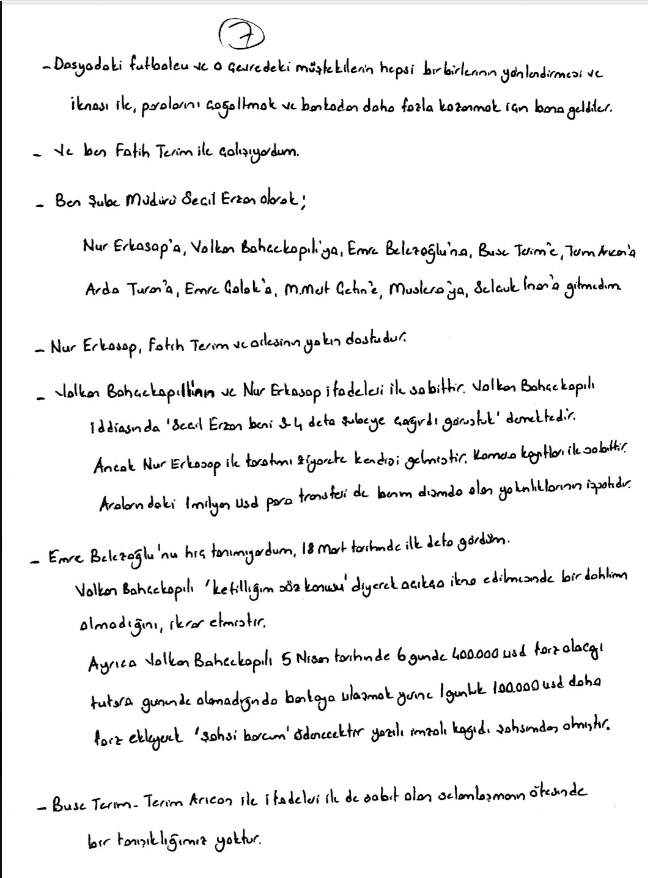 7
- Dosyadaki futbolcu ve o çevredeki müştekilerin hepsi birbirlerinin yönlendirmesi ve
iknası ile, paralarını çoğaltmak ve bankadan daha fazla kazanmak için bana geldiler.
- Ve ben Fatih Terim ile çalışıyordum.
- Ben Şube Müdürü Seçil Erzan olarak;
Nur Erkasap'a, Volkan Bahçekapılı'ya, Emre Belezoğlu'na, Buse Terim'e, Terim Arıcan'a
Arda Turan'a, Emre Çolak'a, M.Mert Çetin'e, Muslera'ya, Selçuk İnan'a gitmedim
- Nur Erkasap, Fatih Terim ve ailesinin yakın dostudur.
- Volkan Bahçekapılı'nın ve Nur Erkasap ifadeleri ile sabittir. Volkan Bahçekapılı
iddiasında 'Seçil Erzan beni 3-4 defa şubeye çağırdı görüştük' demektedir.
Ancak Nur Erkasap ile tarafımı ziyarete kendisi gelmiştir. Kamera kayıtları ile sabittir.
Aralarındaki 1 milyon usd para transferi de benim dışımda olan yakınlıklarının ispatıdır.
- Emre Belezoğlu'nu hiç tanımıyordum, 18 Mart tarihinde ilk defa gördüm.
Volkan Bahçekapılı 'kefilliğim söz konusu' diyerek açıkça ikna edilmesinde bir dahlim
olmadığını, ikrar etmiştir.
Ayrıca Volkan Bahçekapılı 5 Nisan tarihinde 6 günde 400.000 usd faiz alacağı
tutarı gününde alamadığında bankaya ulaşmak yerine 1 günlük 100.000 usd daha
faiz ekleyerek 'şahsi borcum' ödenecektir yazılı imzalı kağıdı şahsımdan almıştır.
- Buse Terim - Terim Arıcan ile ifadeleri ile de sabit olan selamlaşmanın ötesinde
bir tanışıklığımız yoktur.